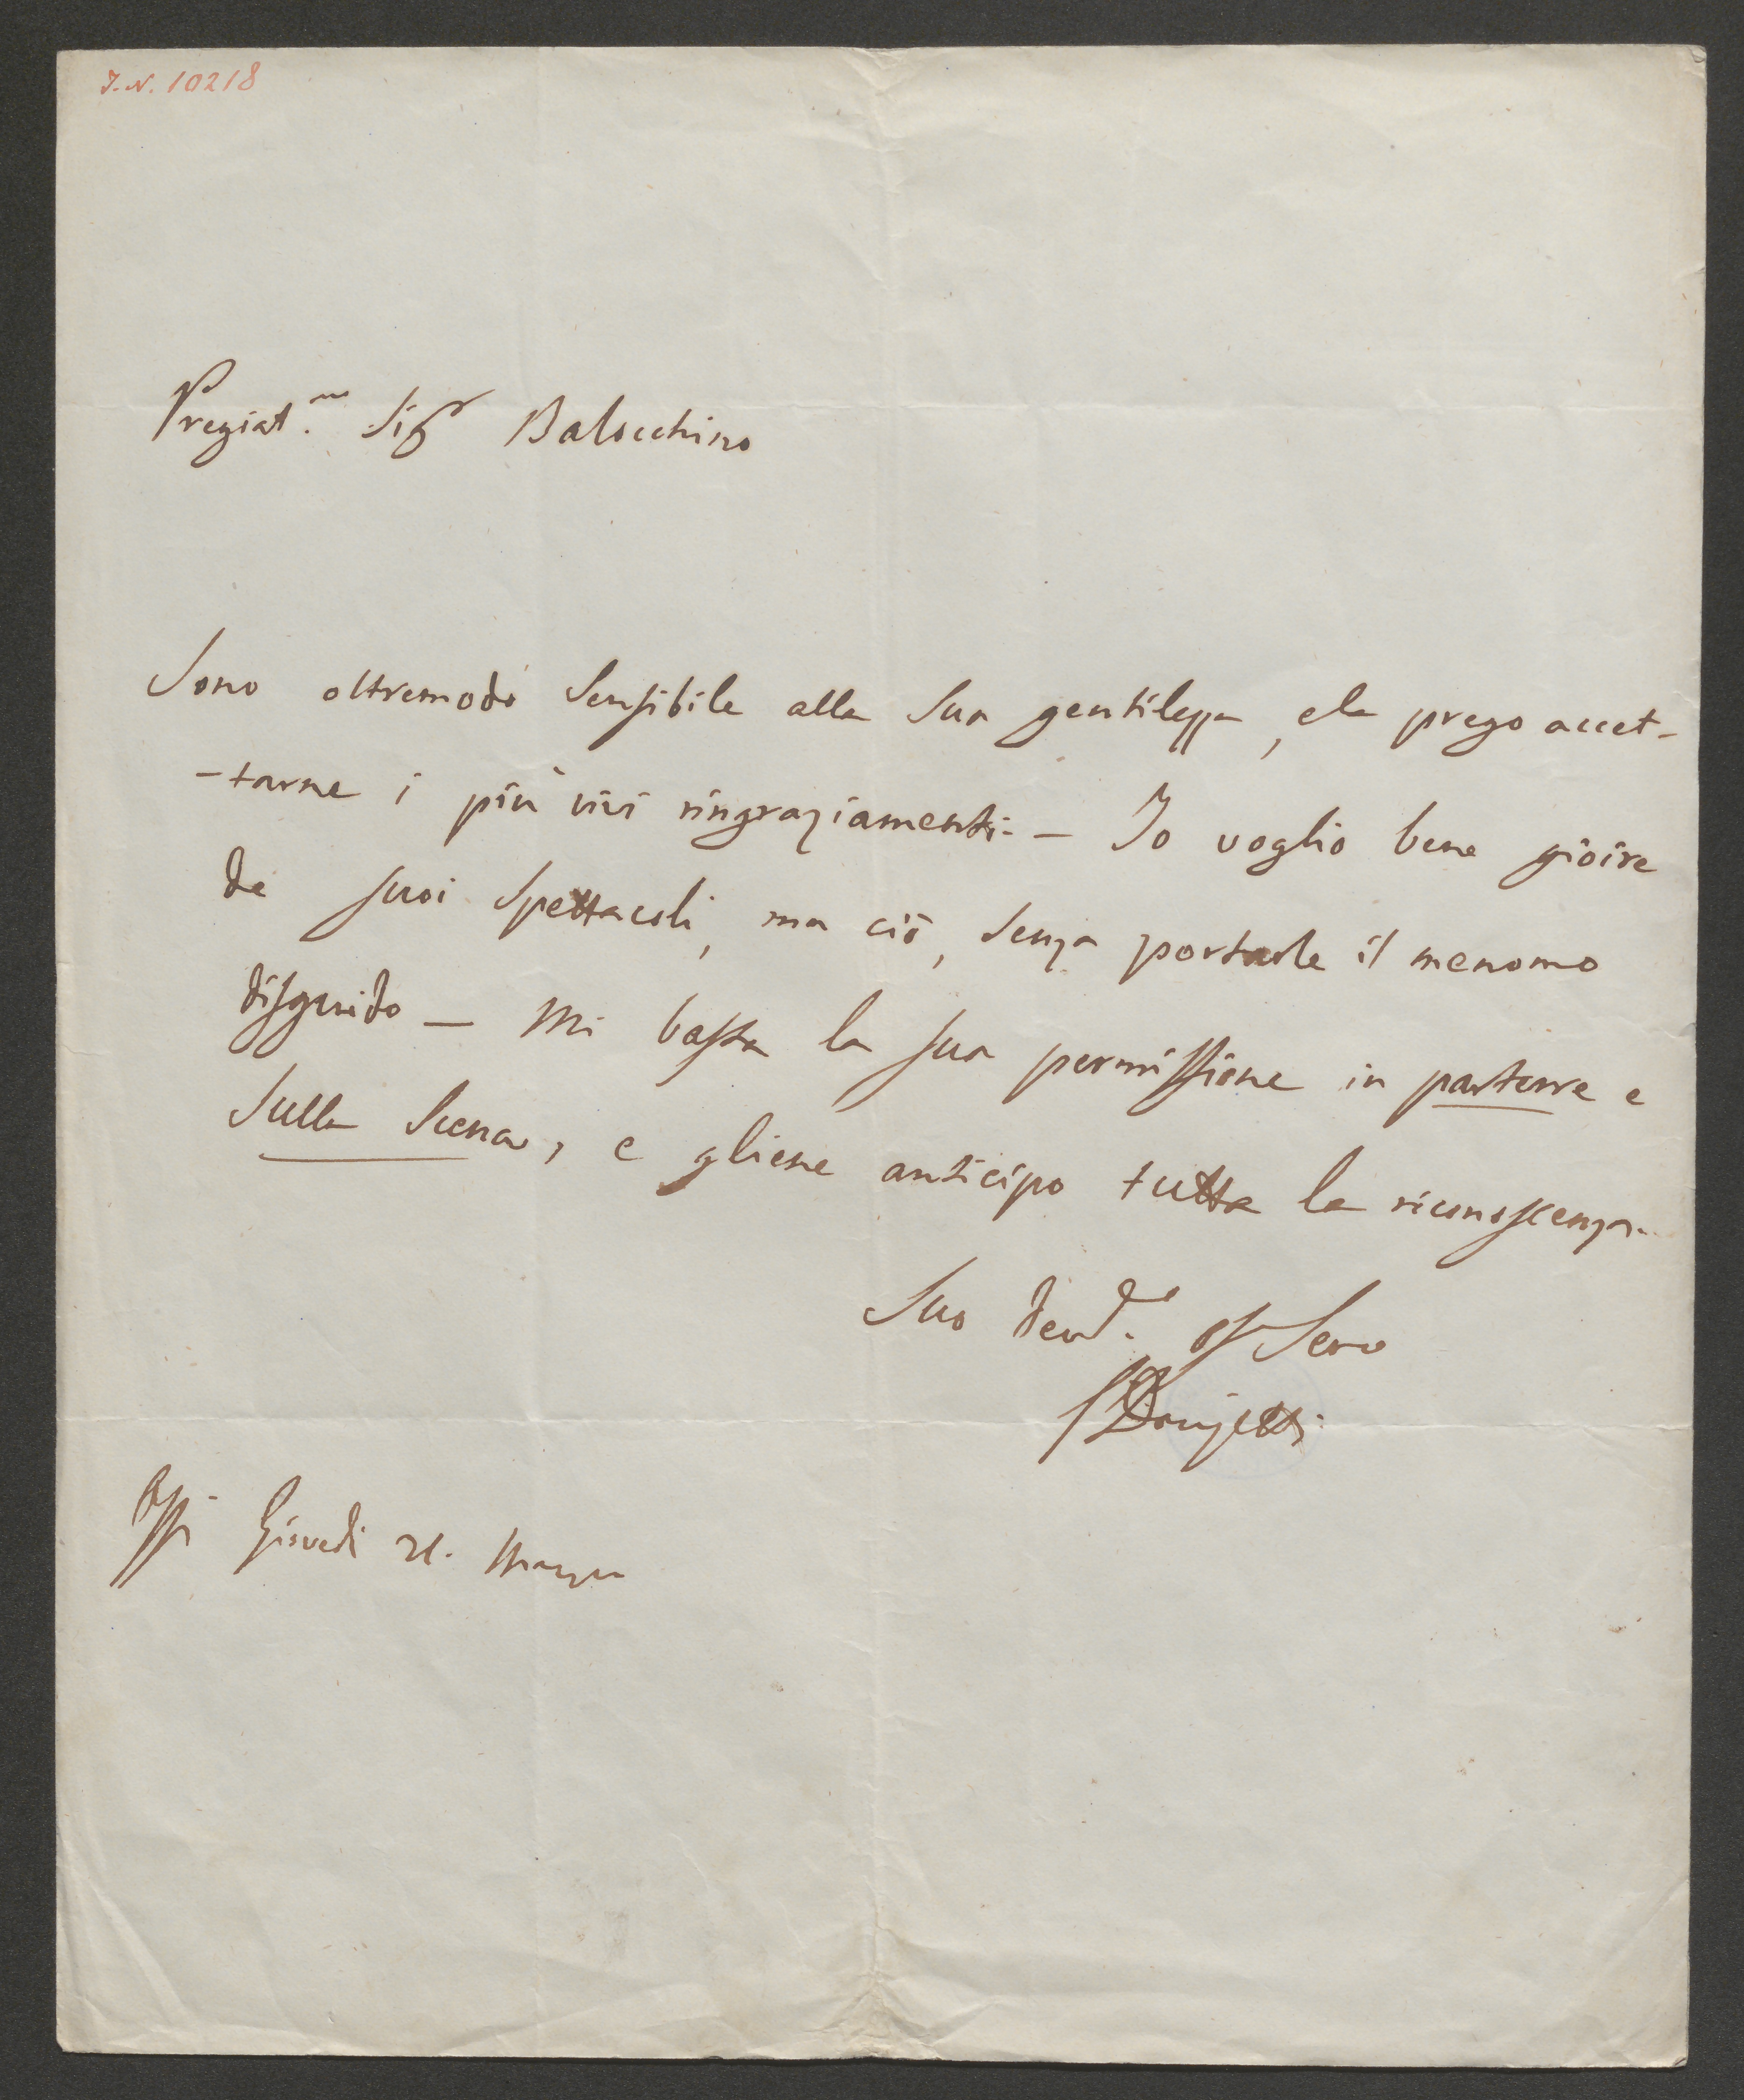 J.N. 10218
Pregiat.mo Sigr Balocchino
Sono oltremodo sensibile alla sua gentilezza, e la prego accet-
-tarne i più vivi ringraziamenti. — Io voglio bene gioire
de suoi spettacoli, ma ciò, senza portarle il menomo
disguido — Mi basta la sua permissione in parterre e
sulla scena, e gliene anticipo tutta la riconoscenza.
Suo Servo
Donizetti
Oggi Giovedi 21. Marzo